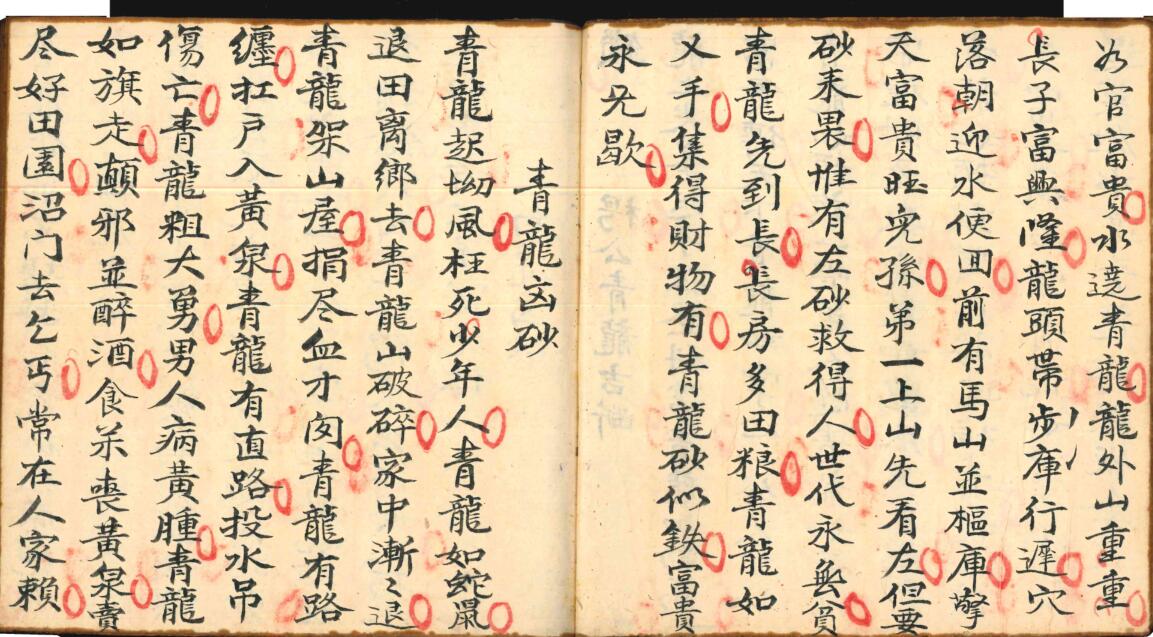 為官富貴水遶青龍龍外山重重
長子富興隆龍頭帶步庫行遲穴
落朝迎水便回前有馬山並樞庫擎
天富貴旺兒孫第一上山先看左但要
砂來畏惟有左砂救得人世代永無貧
青龍先到長長房多田粮青龍如
乂手集得財物有青龍砂似鉄富貴
永兄歇
青龍凶砂
青龍起坳風枉死少年人青龍如蛇鼠
退田离鄉去青龍山破碎家中漸々退
青龍架山屋捐尽血才囱青龍有路
纏扛戶入黃泉青龍有直路投水吊
傷亡青龍粗大舅男人病黃腫青龍
如旗走顛邪並醉酒食茶喪黃泉賣
尽好田園沼门去乞丐常在人家賴